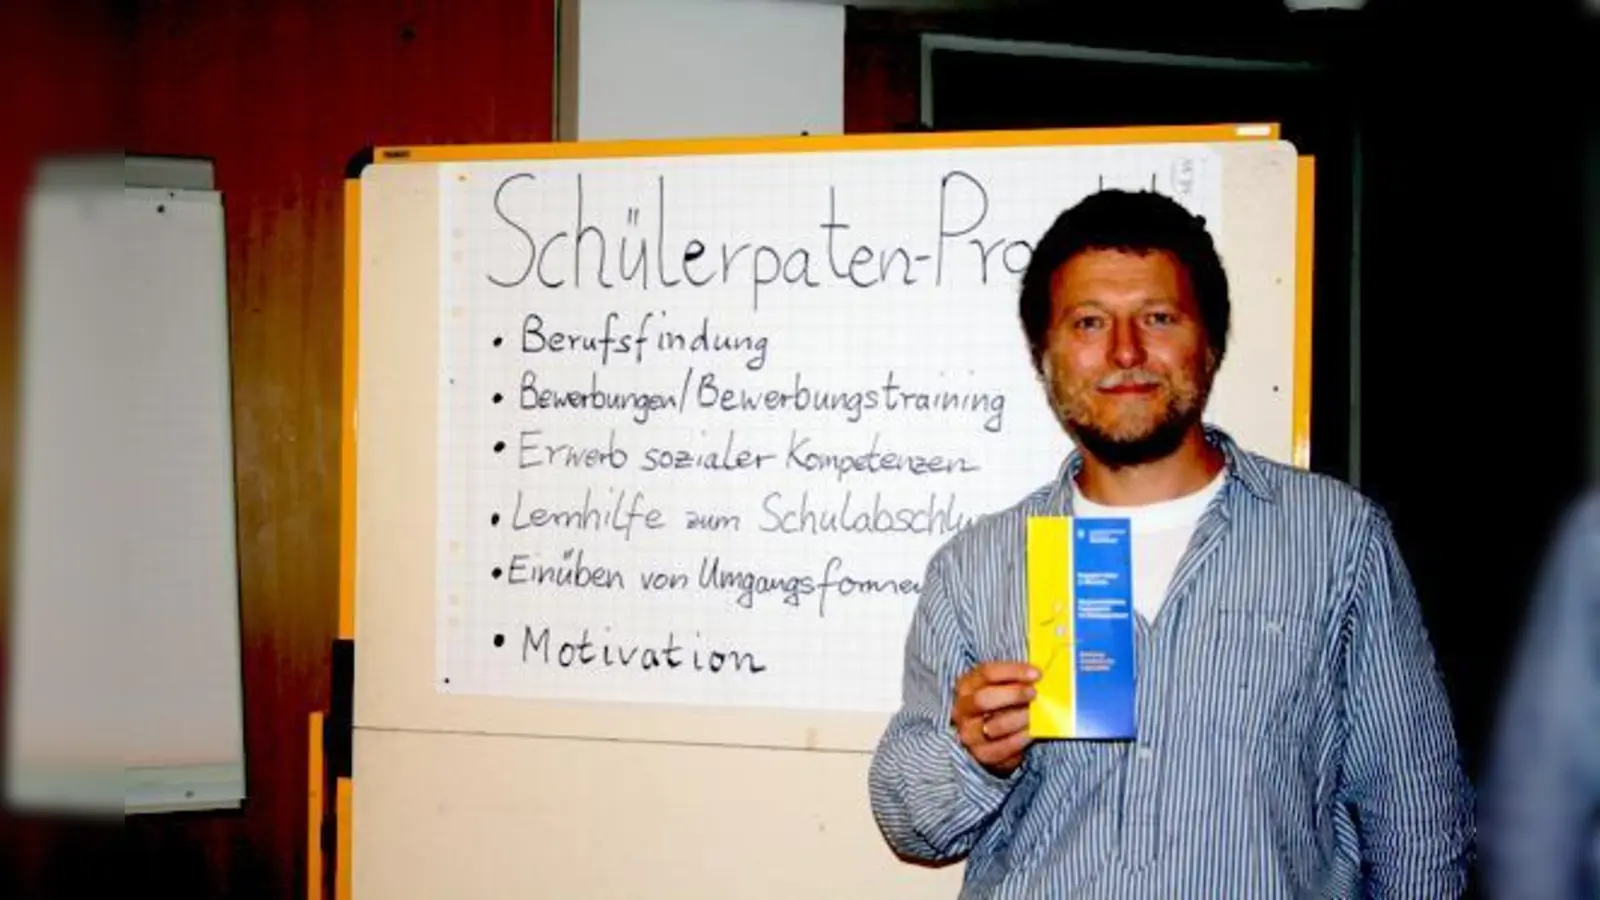 Schülerpaten-Pro
• Berufsfindung
• Bewerbungen/Bewerbungstraining
• Erwerb sozialer Kompetenzen
• Lernhilfe zum Schulabschlu
• Einüben von Umgangsformen
• Motivation